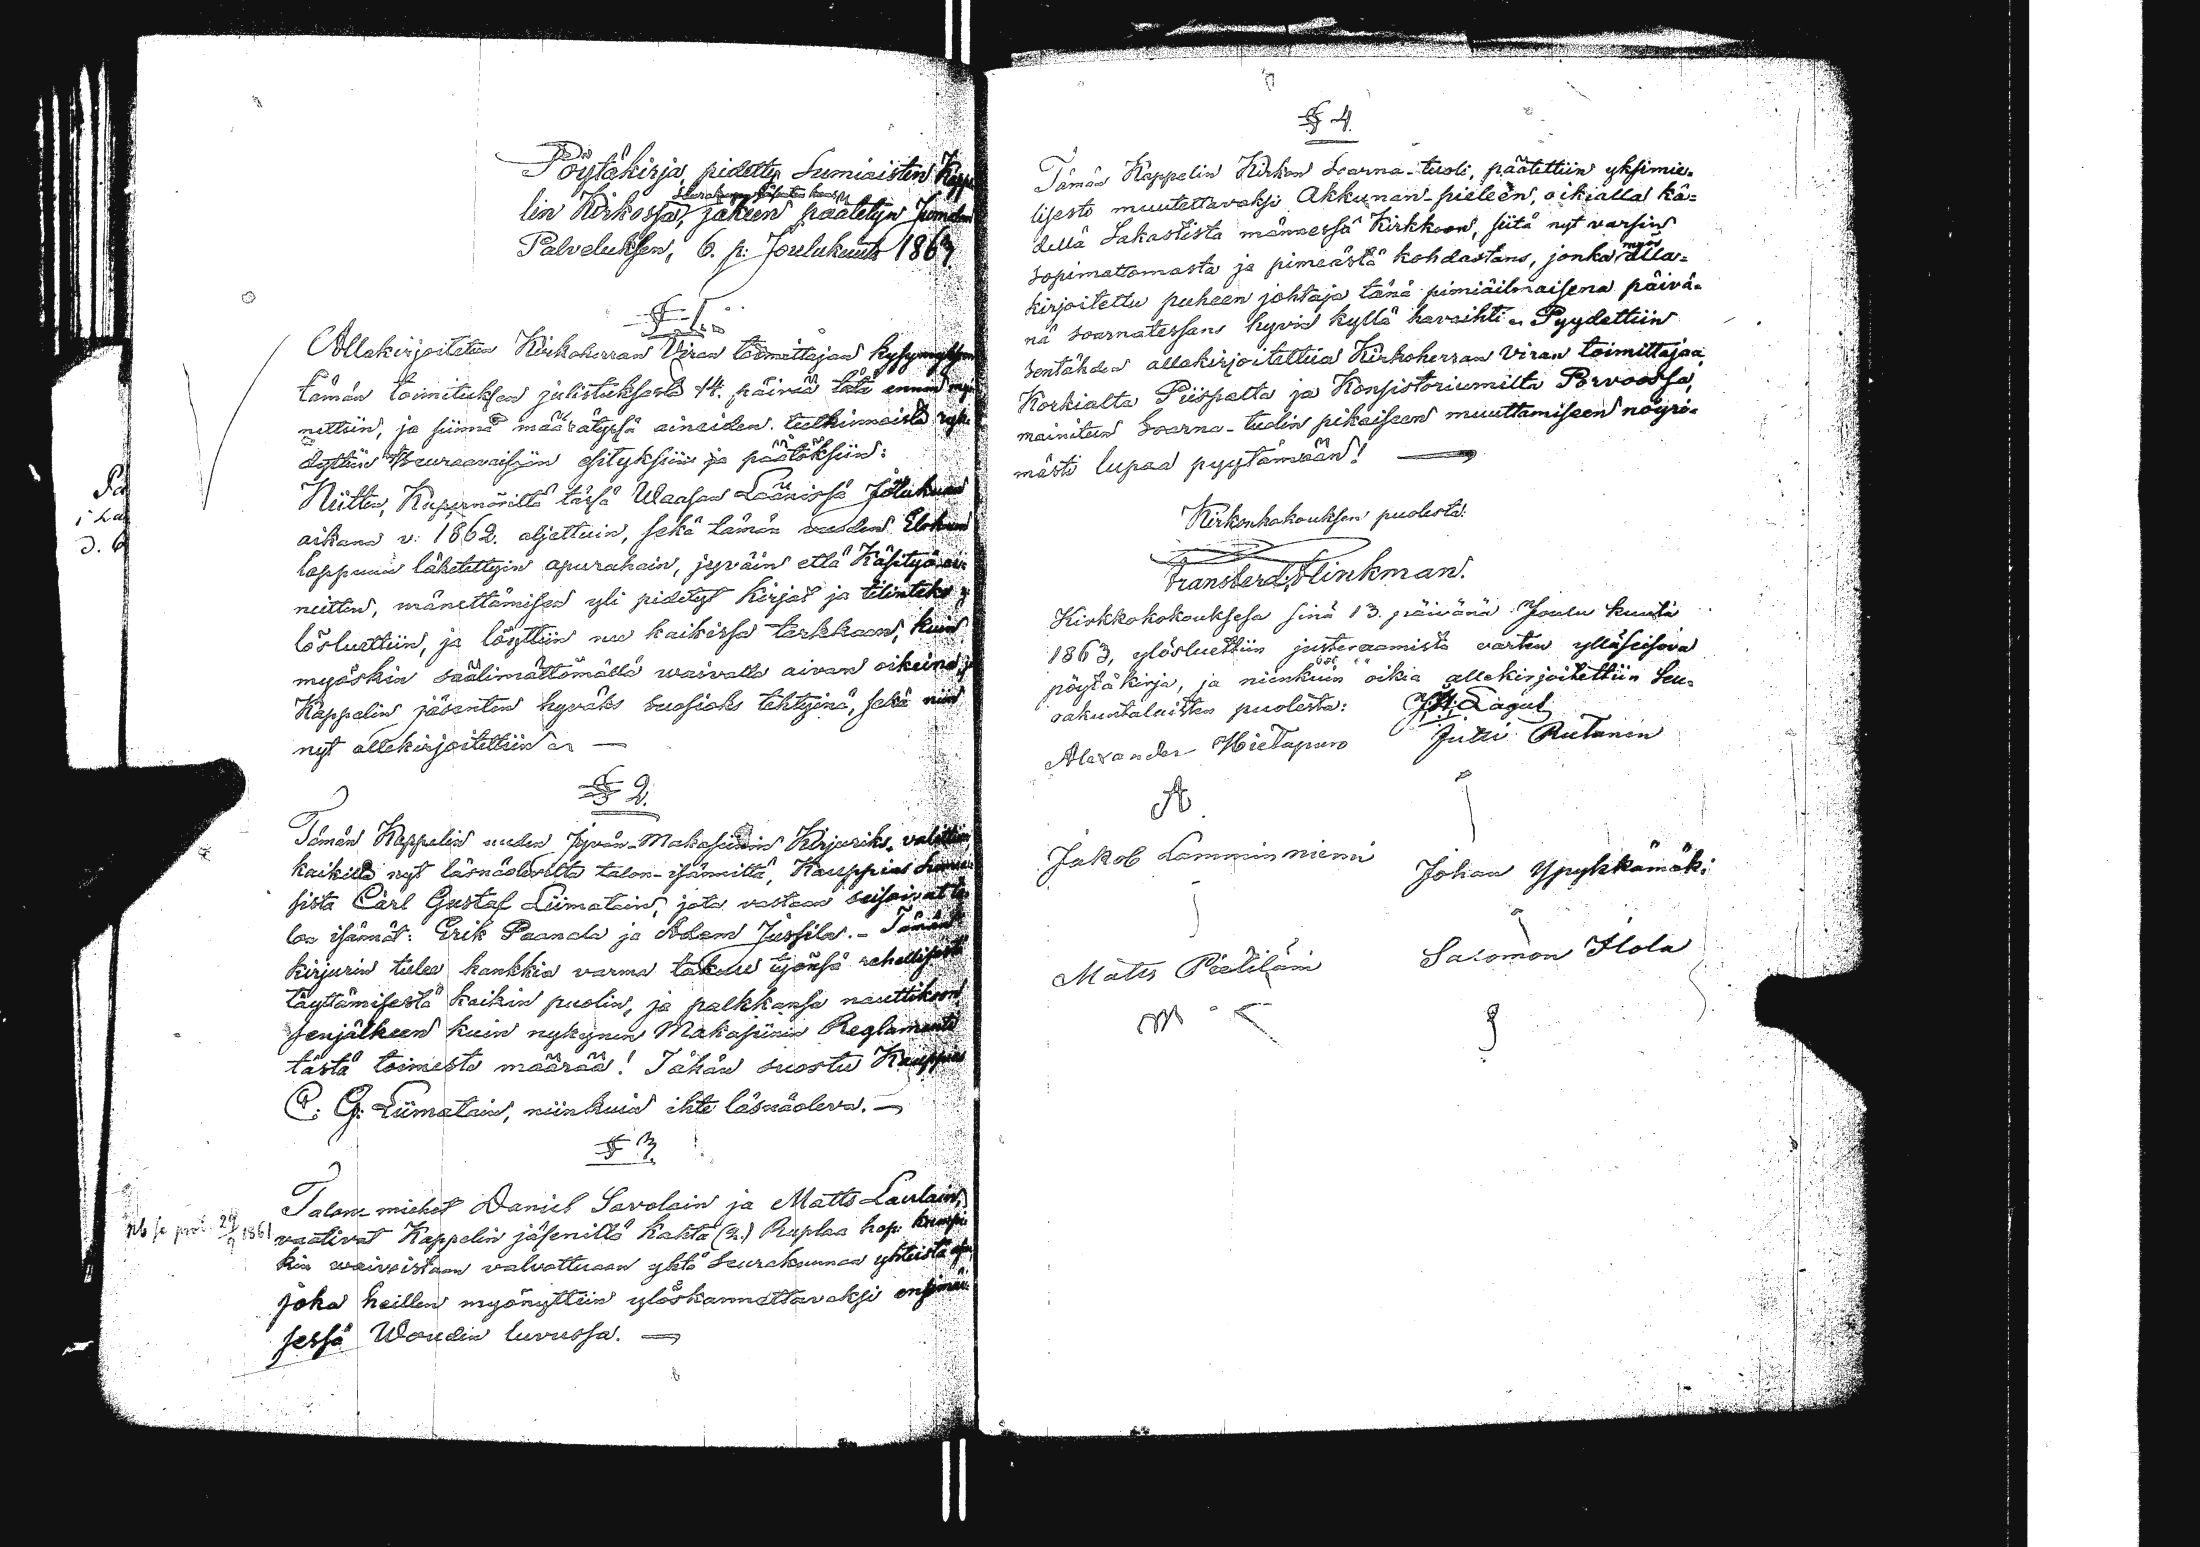 Pöytäkirja, pidetty Sumiaisten Kappe
lin Kirkossa, jälkeen päätetyn Jumalan
Palveluksen, 6. p: Joulukuuta 1863.
§ 1.
Allakirjoitetun Kirkoherran Viran toimittajan kysymyksen
tämän toimituksen julistuksesta 14. päivää tätä ennen myö
nettiin, ja siinä määrätyssä aineiden tutkimista ryh
dyttiin Seuraavaisiin esityksiin ja päätöksiin:
Niitten, Kupernöriltä tässä Waasan Läänissä Joulukuun
aikana v. 1862. aljettuin, sekä tämän vuoden Elokuun
loppuun lähetettyin apurahain, jyväin että Käsityö ai
neitten, menettämisen yli pidetyt kirjat ja tilinteko y
lösluettiin, ja löyttiin ne kaikissa tarkkaan, kuin
myöskin säälimättömällä waivalla aivan oikeina, ja
Kappelin jäsenten hyväks suosioks tehtyinä, sekä niin
nyt allekirjoitettiin
§ 2.
Tämän Kappelin uuden Jyvän-Makasiinin Kirjuriks, valittiin
kaikilda nyt läsnäolevilta talon-isänniltä, Kauppias Sumia
sista Carl Gustaf Liimatain, jota vastaan seisoivat ta
lon isännät: Erik Paanala ja Adam Jussila. - Tämän
kirjurin tulee hankkia varma takaus työnsä rehellisestä
täyttämisestä kaikin puolin, ja palkkansa nauttikoon
senjälkeen kuin nykynen Makasiinin Reglamenti
tästä toimesta määrää! Tähän suostu Kauppias
C. G. Liimatain, niinkuin ihte läsnäoleva.
§ 3.
Talon-miehet Daniel Savolain ja Matts Laulain,
vaativat Kappelin jäseniltä kahta (2.) Ruplaa hop. kumpi
kin waivoistaan valvottuaan yhtä Seurakunnan yhteistä
joka heillen myönyttiin ylöskannettavaksi ensimäi
sessä Woudin luvussa.
29/9 1861
§ 4.
Tämän Kappelin Kirkon Saarna-tuoli, päätettiin yksimie-
lisesti muutettavaksi Akkunan-pieleen, oikialla kä-
dellä Sakastista männessä Kirkkoon, siitä nyt varsin
sopimattomasta ja pimeästä kohdastans, jonka myös alla-
kirjoitettu puheen johtaja tänä pimiäilmaisena päivä-
nä saarnatessans hyvin kyllä havaihti. Pyydettiin
sentähden allakirjoitettua Kirkoherran Viran toimittajaa
Korkialta Piispalta ja Konsistoriumilta Porvoossa,
mainitun Saarna-tuolin pikaiseen muuttamiseen nöyri-
mästi lupaa pyytämään!
Kirkonkokouksen puolesta:
Frans Ferd. Flinkman.
Kirkkokokouksesa sinä 13. päivänä Joulu kuuta
1863, ylösluettiin justeeraamista varten ylläseisova
pöytäkirja, ja niinkuin oikia allekirjoitettiin Seu-
rakuntalaisten puolesta: J.H. Lagus
Alexander Hietapuro Juki Rutanen
A
Jakob Lamminniemi Johan Ypykkämäki
Matts Pietiläin Salomon Ilola